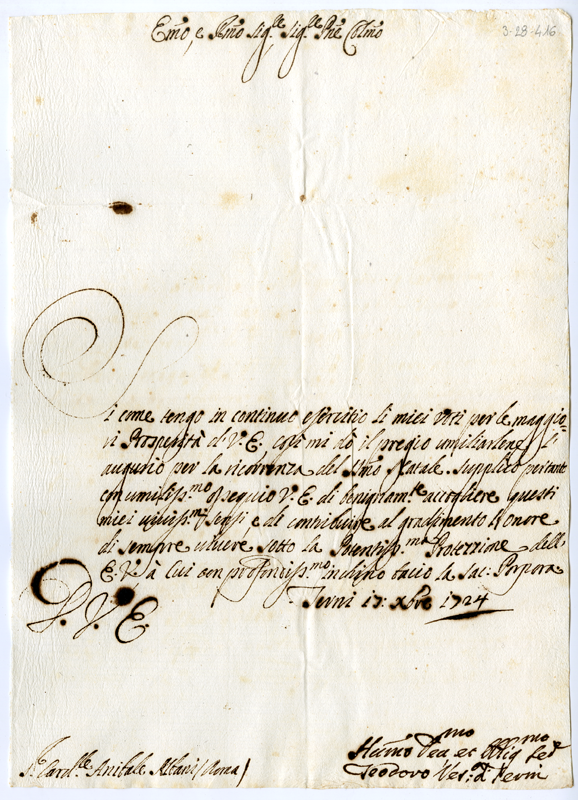 Em̃o, e Rm̃o Sig.re Sig.re Pne Colm̃o
3-28-416
Si come tengo in continuo esercitio li miei Voti per le maggio-
ri Prosperità di V. E. così mi dò il pregio umiliarlene l'
augurio per la ricorrenza del Smo Natale. Supplico pertanto
con umiliss.mo ossequio V. E. di benignam.te accogliere questi
miei viviss.mi sensi e di contribuire al gradimento l'onore
di sempre vivere sotto la Potentiss.ma Protezzione dell'
E. V. à Cui con profondiss.mo Inchino bacio la Sac: Porpora
Terni 17: Xbre 1724
D. V. E.
S.r Card.le Anibale Albani (Roma)
Hum̃o Deu.mo et Obblig.mo Ser.e
Teodoro Ves.o di Terni